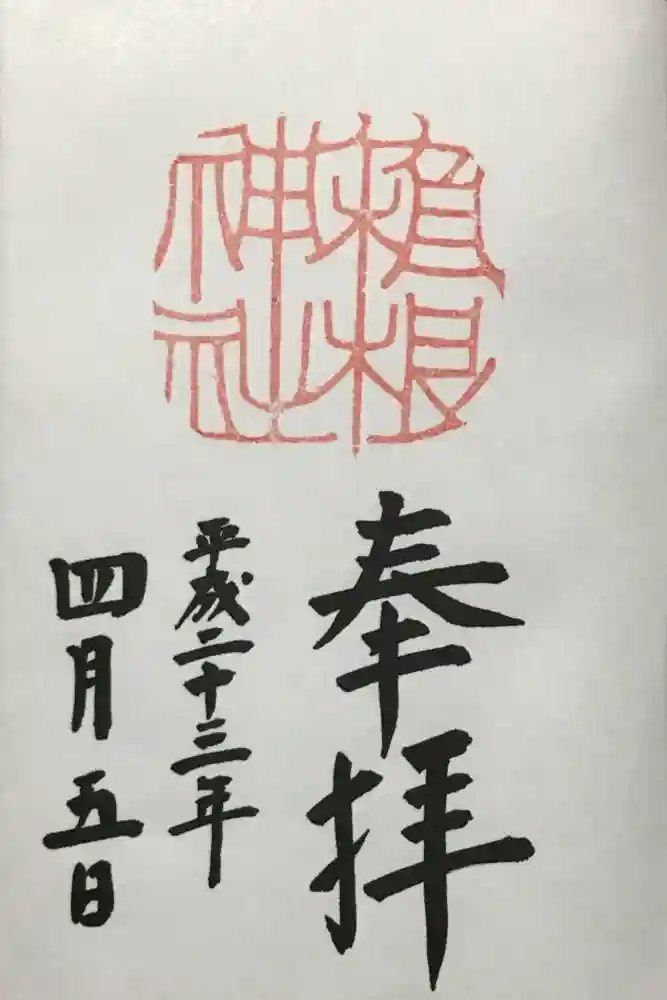 植根
神社
奉拝
平成二十三年
四月五日